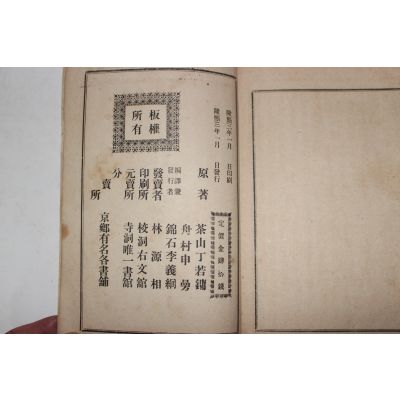 隆熙三年一月　日印刷
隆熙三年一月　日發行
定價金肆拾錢
原著　茶山丁若鏞
舟村申曼
編譯兼發行者　錦石李義絅
發賣者　林源相
印刷所　校洞右文館
元賣所　寺洞唯一書館
分賣所　京鄉有名各書舖
板權所有